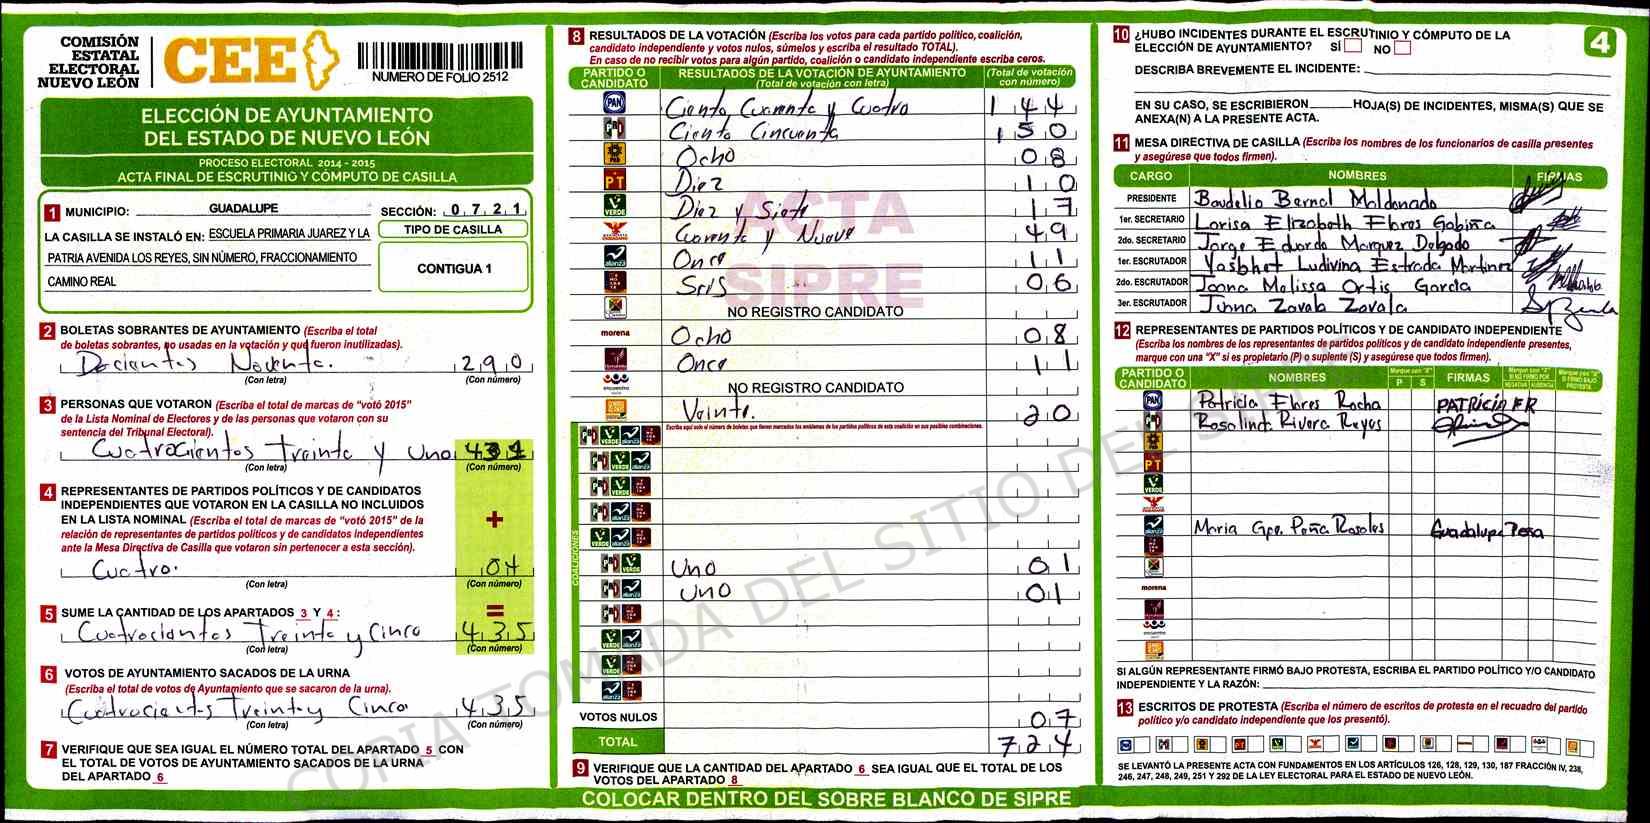 COMISIÓN
ESTATAL
ELECTORAL
NUEVO LEÓN
CEE
NUMERO DE FOLIO 2512
ELECCIÓN DE AYUNTAMIENTO
DEL ESTADO DE NUEVO LEÓN
PROCESO ELECTORAL 2014 - 2015
ACTA FINAL DE ESCRUTINIO Y CÓMPUTO DE CASILLA
1 MUNICIPIO: GUADALUPE SECCIÓN: 0,7,2,1
LA CASILLA SE INSTALÓ EN: ESCUELA PRIMARIA JUAREZ Y LA
PATRIA AVENIDA LOS REYES, SIN NÚMERO, FRACCIONAMIENTO
CAMINO REAL
TIPO DE CASILLA
CONTIGUA 1
2 BOLETAS SOBRANTES DE AYUNTAMIENTO (Escriba el total
de boletas sobrantes, no usadas en la votación y que fueron inutilizadas).
Docientos Noventa. 290
(Con letra) (Con número)
3 PERSONAS QUE VOTARON (Escriba el total de marcas de "votó 2015"
de la Lista Nominal de Electores y de las personas que votaron con su
sentencia del Tribunal Electoral).
Cuatrocientos Treinta y Uno 431
(Con letra) (Con número)
4 REPRESENTANTES DE PARTIDOS POLÍTICOS Y DE CANDIDATOS
INDEPENDIENTES QUE VOTARON EN LA CASILLA NO INCLUIDOS
EN LA LISTA NOMINAL (Escriba el total de marcas de "votó 2015" de la
relación de representantes de partidos políticos y de candidatos independientes
ante la Mesa Directiva de Casilla que votaron sin pertenecer a esta sección).
+
Cuatro. 04
(Con letra) (Con número)
5 SUME LA CANTIDAD DE LOS APARTADOS 3 Y 4:
=
Cuatrocientos Treinta y Cinco 435
(Con letra) (Con número)
6 VOTOS DE AYUNTAMIENTO SACADOS DE LA URNA
(Escriba el total de votos de Ayuntamiento que se sacaron de la urna).
Cuatrocientos Treinta y Cinco 435
(Con letra) (Con número)
7 VERIFIQUE QUE SEA IGUAL EL NÚMERO TOTAL DEL APARTADO 5 CON
EL TOTAL DE VOTOS DE AYUNTAMIENTO SACADOS DE LA URNA
DEL APARTADO 6
8 RESULTADOS DE LA VOTACIÓN (Escriba los votos para cada partido político, coalición,
candidato independiente y votos nulos, súmelos y escriba el resultado TOTAL).
En caso de no recibir votos para algún partido, coalición o candidato independiente escriba ceros.
PARTIDO O CANDIDATO RESULTADOS DE LA VOTACIÓN DE AYUNTAMIENTO (Total de votación con letra) (Total de votación con número)
PAN Ciento Cuarenta y Cuatro 144
PRI Ciento Cincuenta 150
PRD Ocho 08
PT Diez 10
VERDE Diez y Siete 17
Cuarenta y Nueve 49
alianza Once 11
Seis 06
NO REGISTRO CANDIDATO
morena Ocho 08
Once 11
encuentro NO REGISTRO CANDIDATO
Veinte. 20
Escriba aquí solo el número de boletas que tienen marcados los emblemas de los partidos políticos de esta coalición en sus posibles combinaciones.
COALICIONES
Uno 01
Uno 01
VOTOS NULOS 07
TOTAL 724
9 VERIFIQUE QUE LA CANTIDAD DEL APARTADO 6 SEA IGUAL QUE EL TOTAL DE LOS
VOTOS DEL APARTADO 8
ACTA
SIPRE
10 ¿HUBO INCIDENTES DURANTE EL ESCRUTINIO Y CÓMPUTO DE LA
ELECCIÓN DE AYUNTAMIENTO? SÍ NO
4
DESCRIBA BREVEMENTE EL INCIDENTE:
EN SU CASO, SE ESCRIBIERON HOJA(S) DE INCIDENTES, MISMA(S) QUE SE
ANEXA(N) A LA PRESENTE ACTA.
11 MESA DIRECTIVA DE CASILLA (Escriba los nombres de los funcionarios de casilla presentes
y asegúrese que todos firmen).
CARGO NOMBRES FIRMAS
PRESIDENTE Baudelio Bernal Maldonado
1er. SECRETARIO Larisa Elizabeth Flores Gobiña
2do. SECRETARIO Jorge Eduardo Marquez Delgado
1er. ESCRUTADOR Yasbhet Ludivina Estrada Martinez
2do. ESCRUTADOR Joana Melissa Ortis Garcia
3er. ESCRUTADOR Juana Zavala Zavala
12 REPRESENTANTES DE PARTIDOS POLÍTICOS Y DE CANDIDATO INDEPENDIENTE
(Escriba los nombres de los representantes de partidos políticos y de candidato independiente presentes,
marque con una "X" si es propietario (P) o suplente (S) y asegúrese que todos firmen).
PARTIDO O CANDIDATO NOMBRES Marque con "X" P S FIRMAS Marque con "X" SI NO FIRMÓ POR NEGATIVA AUSENCIA Marque con "X" SI FIRMÓ BAJO PROTESTA
PAN Patricia Flores Rocha PATRICIA FR
Rosalinda Rivera Reyes
PRD
PT
VERDE
alianza Maria Gpe. Peña Rosales Guadalupe Peña
morena
encuentro
SI ALGÚN REPRESENTANTE FIRMÓ BAJO PROTESTA, ESCRIBA EL PARTIDO POLÍTICO Y/O CANDIDATO
INDEPENDIENTE Y LA RAZÓN:
13 ESCRITOS DE PROTESTA (Escriba el número de escritos de protesta en el recuadro del partido
político y/o candidato independiente que los presentó).
SE LEVANTÓ LA PRESENTE ACTA CON FUNDAMENTOS EN LOS ARTÍCULOS 126, 128, 129, 130, 187 FRACCIÓN IV, 238,
246, 247, 248, 249, 251 Y 292 DE LA LEY ELECTORAL PARA EL ESTADO DE NUEVO LEÓN.
COLOCAR DENTRO DEL SOBRE BLANCO DE SIPRE
COPIA TOMADA DEL SITIO DEL SIPRE